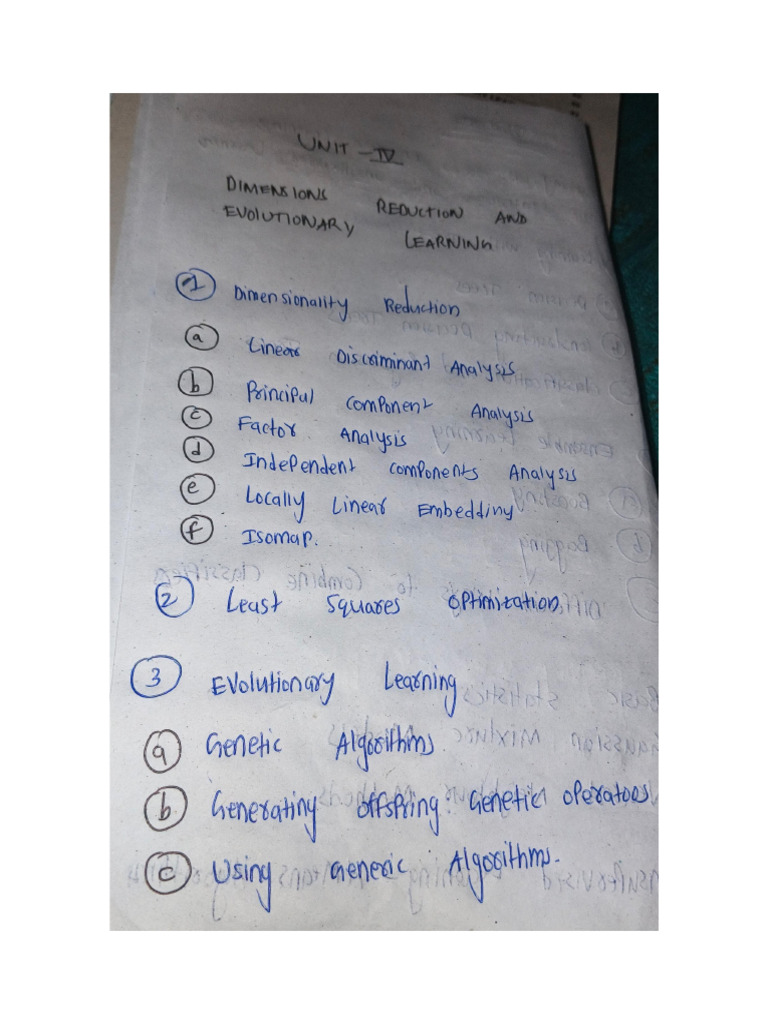 UNIT - IV
DIMENSIONS REDUCTION AND
EVOLUTIONARY LEARNING
1 Dimensionality Reduction
a Linear Discriminant Analysis
b Principal Component Analysis
c Factor Analysis
d Independent Components Analysis
e Locally Linear Embedding
f Isomap.
2 Least Squares Optimization
3 Evolutionary Learning
a Genetic Algorithms
b Generating Offspring: Genetic Operators
c Using Generic Algorithms.